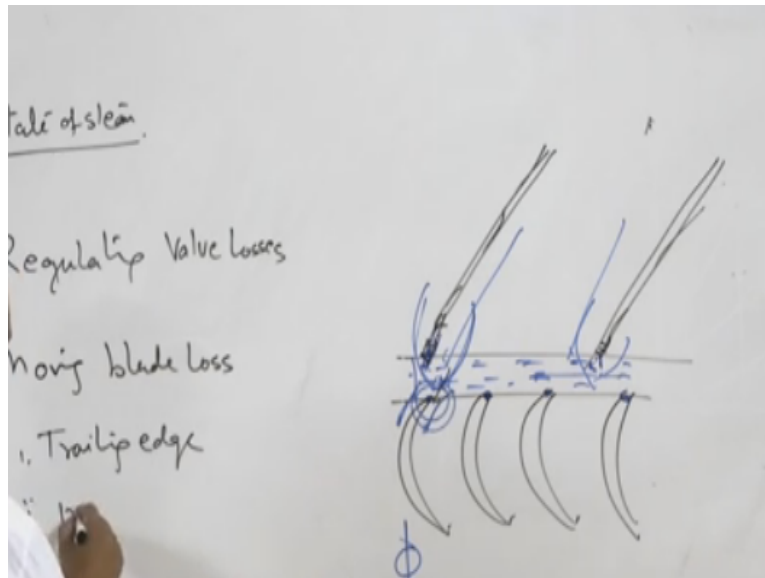 tate of steam
Regulatip Valve Losses
moving blade Loss
i, Trailip edge
ii